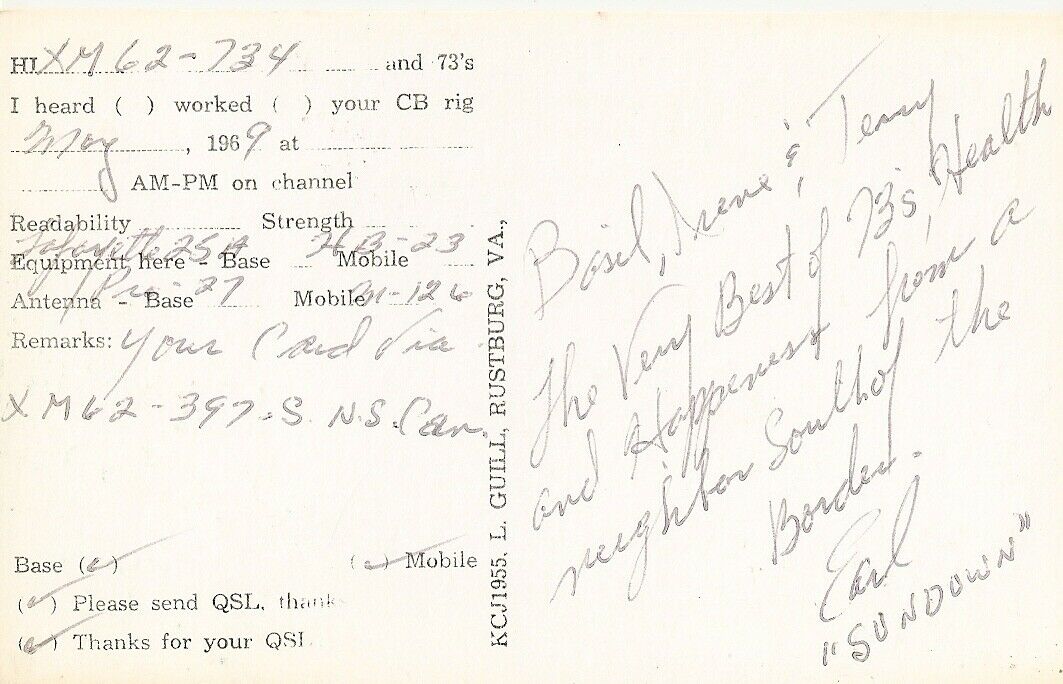 HI XM62-734 and 73's
I heard ( ) worked ( ) your CB rig
May, 1969 at
AM-PM on channel
Readability Strength
Lafayette 25A HB-23
Equipment here - Base Mobile
Antenna - Base Pro-27 Mobile M-126
Remarks: Your Card Via
XM62-397-S. N.S. Can.
Base (✓) (✓) Mobile
(✓) Please send QSL, thanks
(✓) Thanks for your QSL
KCJ1955, L. GUILL, RUSTBURG, VA.,
Basil, Irene & Terry
The Very Best of 73's, Health
and Happeness from a
neighbor South of the
Border.
Earl
"SUNDOWN"